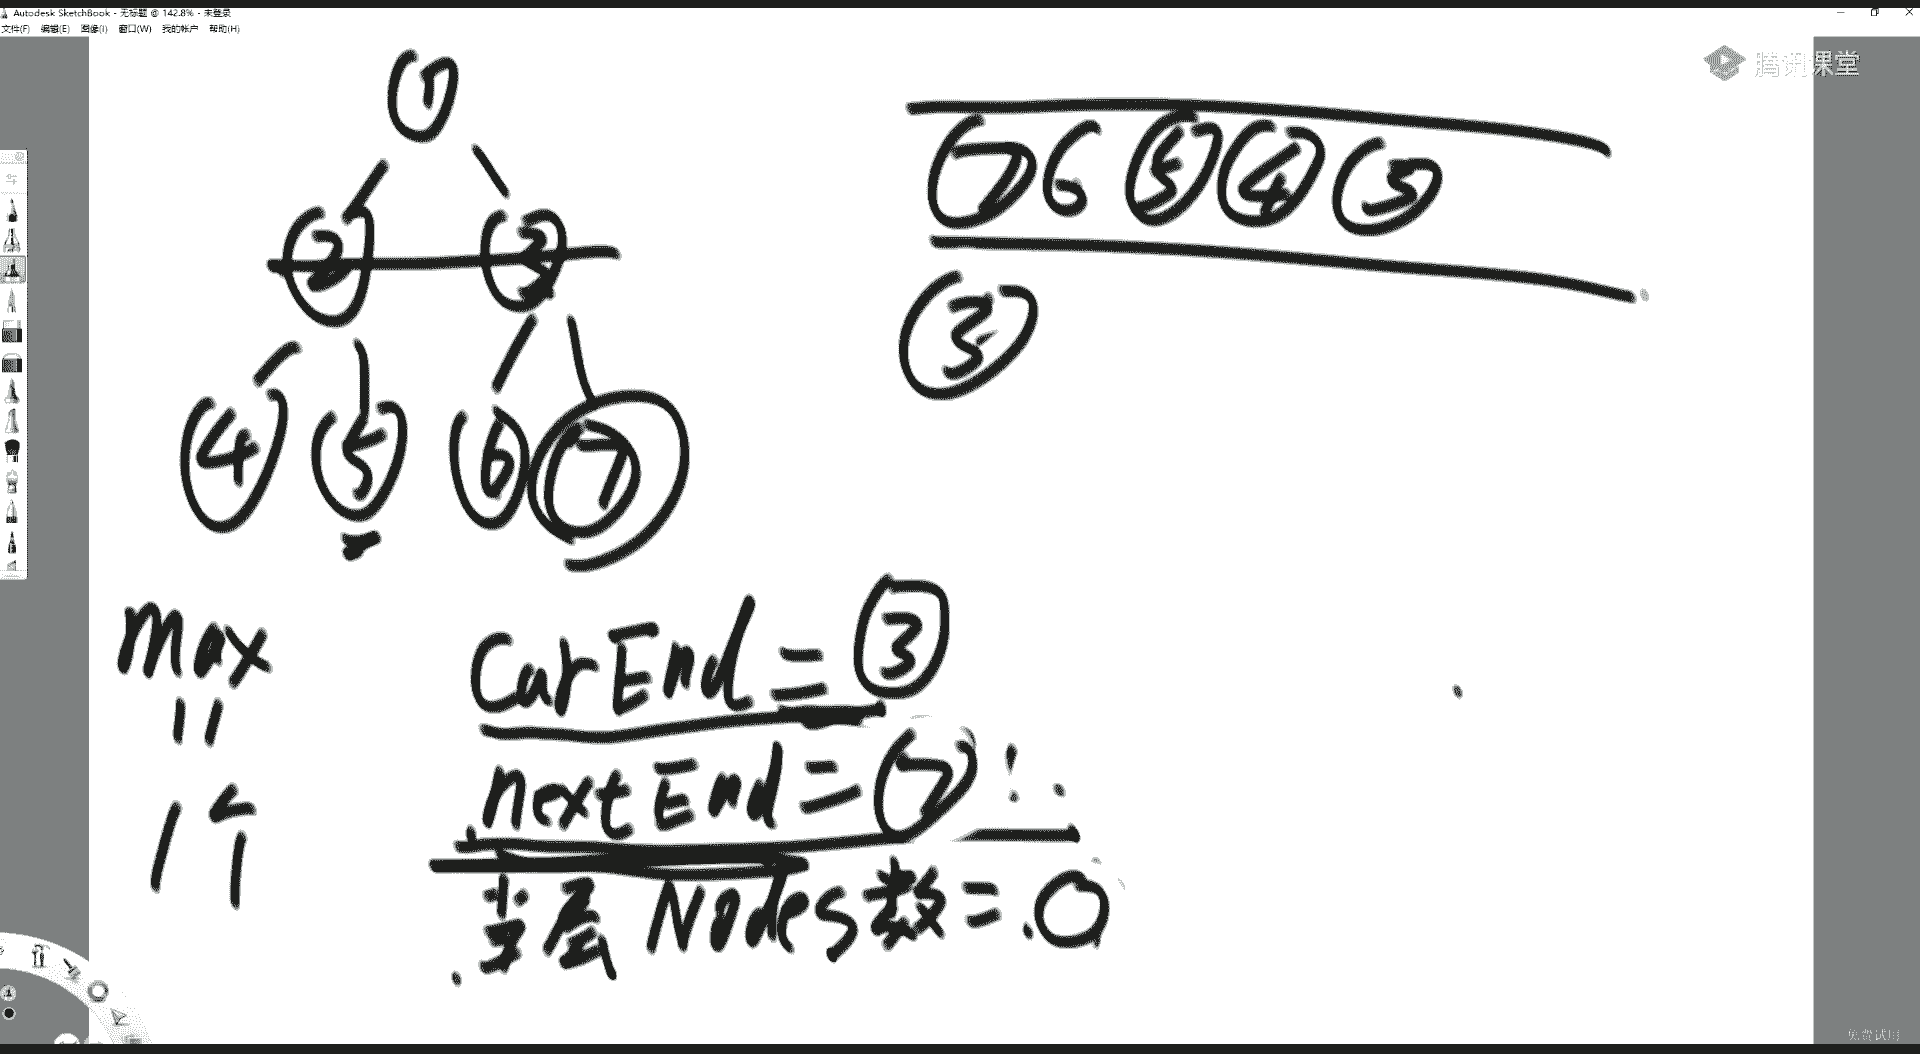 Autodesk SketchBook - 无标题 @ 142.8% - 未登录
文件(F) 编辑(E) 图像(I) 窗口(W) 我的帐户 帮助(H)
腾讯课堂
1
2 3
4 5 6 7
7 6 5 4 3
3
max
=
1个
CurEnd = 3
nextEnd = 7
当层 Nodes数 = 0
免费试用